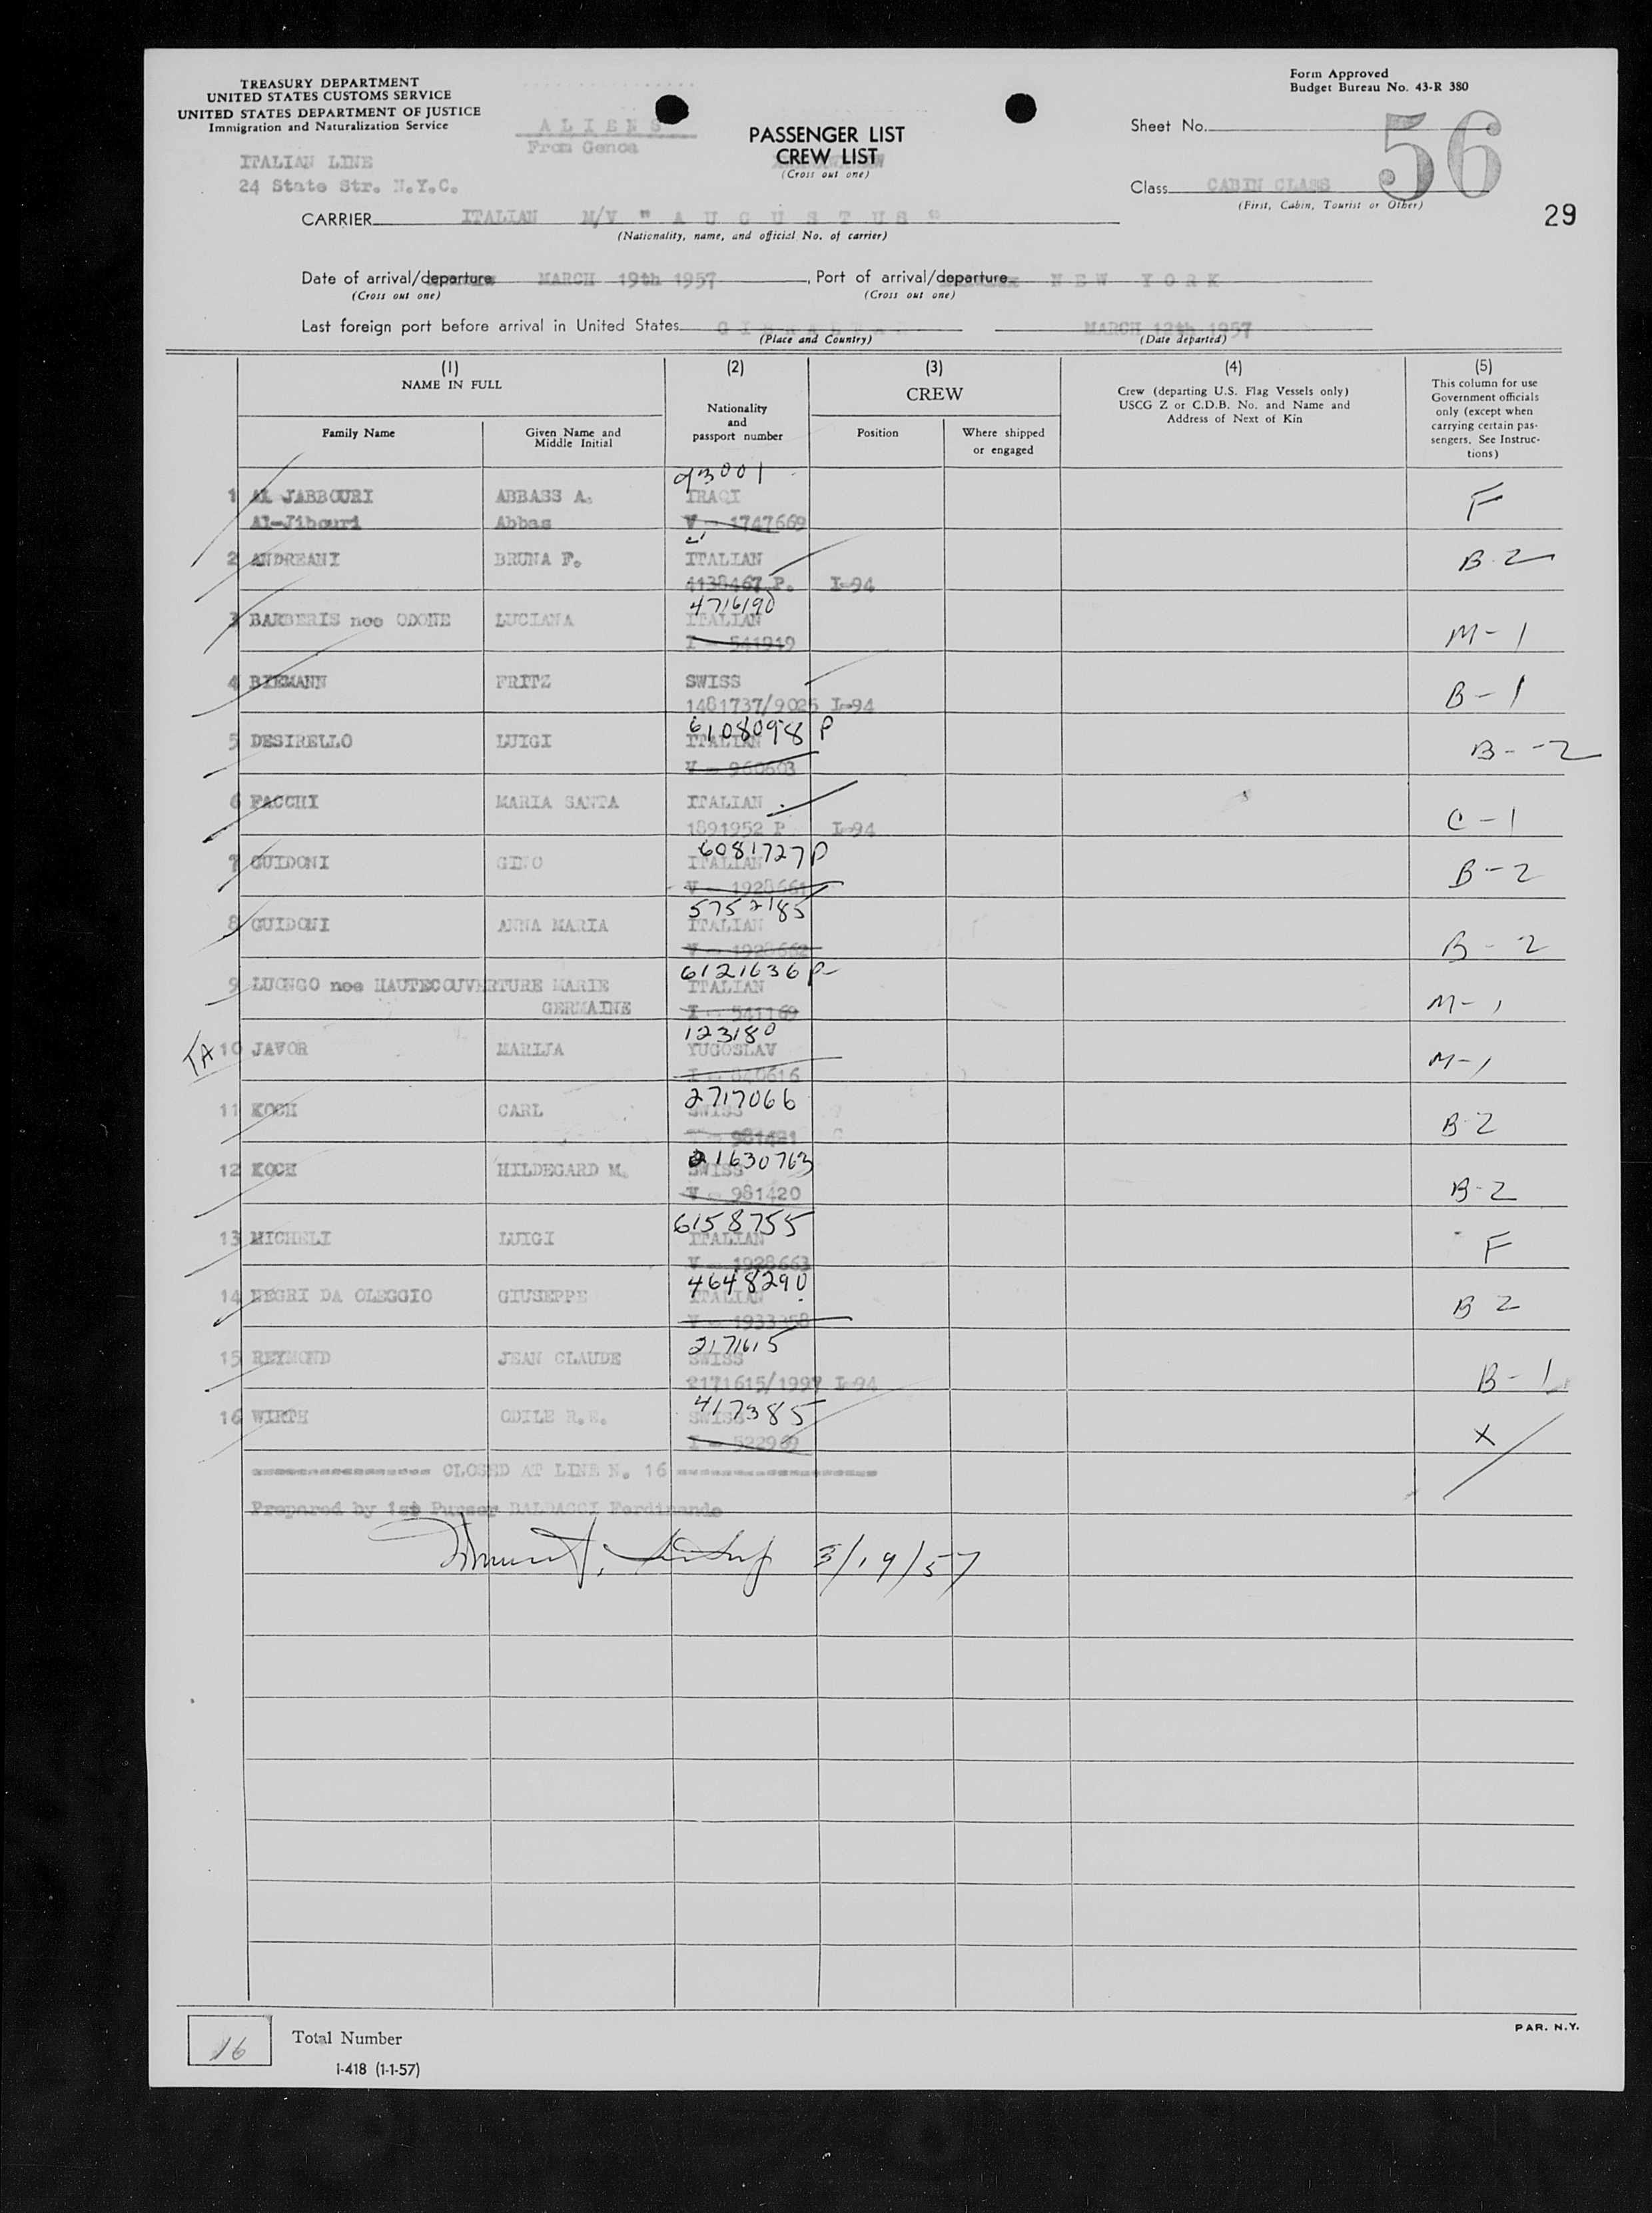 TREASURY DEPARTMENT
UNITED STATES CUSTOMS SERVICE
UNITED STATES DEPARTMENT OF JUSTICE
Immigration and Naturalization Service
ITALIAN LINE
24 State Str. N.Y.C.
ALIENS
From Genoa
PASSENGER LIST
CREW LIST
(Cross out one)
Form Approved
Budget Bureau No. 43-R 380
Sheet No.
56
Class CABIN CLASS
(First, Cabin, Tourist or Other)
29
CARRIER ITALIAN M/V "AUGUSTUS"
(Nationality, name, and official No. of carrier)
Date of arrival/departure MARCH 19th 1957, Port of arrival/departure NEW YORK
(Cross out one) (Cross out one)
Last foreign port before arrival in United States GIBRALTAR MARCH 12th 1957
(Place and Country) (Date departed)
(1) NAME IN FULL
Family Name
Given Name and Middle Initial
(2) Nationality and passport number
(3) CREW
Position
Where shipped or engaged
(4) Crew (departing U.S. Flag Vessels only) USCG Z or C.D.B. No. and Name and Address of Next of Kin
(5) This column for use Government officials only (except when carrying certain passengers. See Instructions)
93001
1 AL JABBOURI ABBASS A. IRAQI F
Al-Jibouri Abbas V - 1747669
2 ANDREANI BRUNA F. ITALIAN B-2
4138467 P. I-94
4716190
3 BARBERIS nee ODONE LUCIANA ITALIAN M-1
I - 541919
4 BIEMANN FRITZ SWISS B-1
1481737/9025 I-94
6108098 P
5 DESIRELLO LUIGI ITALIAN B--2
V - 960603
6 FACCHI MARIA SANTA ITALIAN C-1
1891952 P I-94
6081727 P
7 GUIDONI GINO ITALIAN B-2
V - 1928661
5752185
8 GUIDONI ANNA MARIA ITALIAN B-2
V - 1928662
6121636 P
9 LUONGO nee HAUTECOUVERTURE MARIE ITALIAN M-1
GERMAINE I - 541169
123180
TA 10 JAVOR MARIJA YUGOSLAV M-1
I - 040616
2717066
11 KOCH CARL SWISS B-2
V - 981421
21630763
12 KOCH HILDEGARD M. SWISS B-2
V - 981420
6158755
13 MICHELI LUIGI ITALIAN F
V - 1928663
4648290
14 NEGRI DA OLEGGIO GIUSEPPE ITALIAN B2
V - 1933358
2171615
15 REYMOND JEAN CLAUDE SWISS B-1
2171615/1997 I-94
417385
16 WIRTH ODILE R.E. SWISS X
I - 522969
CLOSED AT LINE N. 16
Prepared by 1st Purser BALDACCI Ferdinando
3/19/57
16
Total Number
I-418 (1-1-57)
PAR. N.Y.